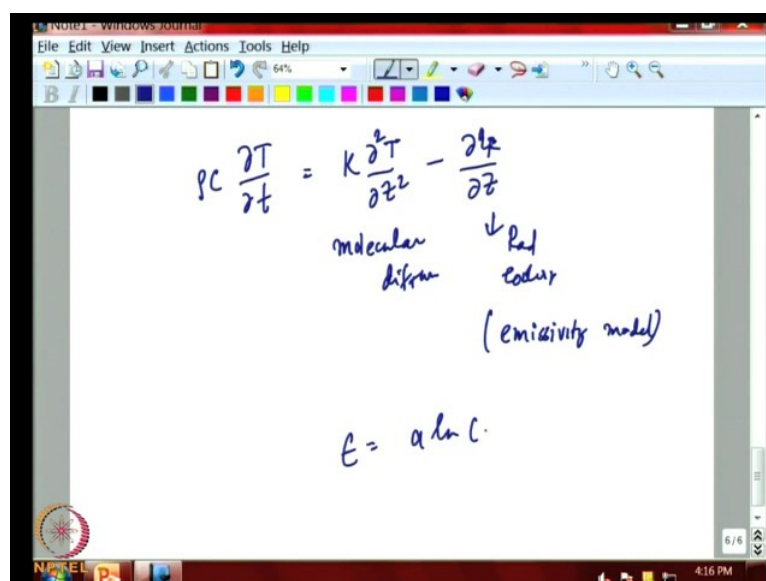 Note1 - Windows Journal
File Edit View Insert Actions Tools Help
64%
B I
ρC ∂T/∂t = K ∂²T/∂z² − ∂q_R/∂z
molecular ↓ Rad
(emissivity model)
ε = a ln C.
6/6
NPTEL
4:16 PM